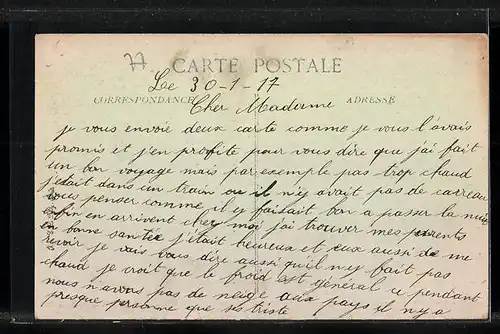 77
CARTE POSTALE
Le 30-1-17
CORRESPONDANCE
ADRESSE
Cher Madame
je vous envoie deux carte comme je vous l'avais
promis et j'en profite pour vous dire que j'ai fait
un bon voyage mais par exemple pas trop chaud
j'était dans un train ou il n'y avait pas de carreau
vous penser comme il y faisait bon a passer la nuit
enfin en arrivent chez moi j'ai trouver mes parents
en bonne santée j'était heureux et eux aussi de me
revoir je vais vous dire aussi qu'il n'y fait pas
chaud je croit que le froid est général cependant
nous n'avons pas de neige aux pays il n'y a
presque personne que ses triste